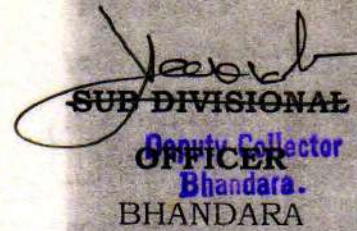 SUB DIVISIONAL
Deputy Collector
OFFICER
Bhandara.
BHANDARA